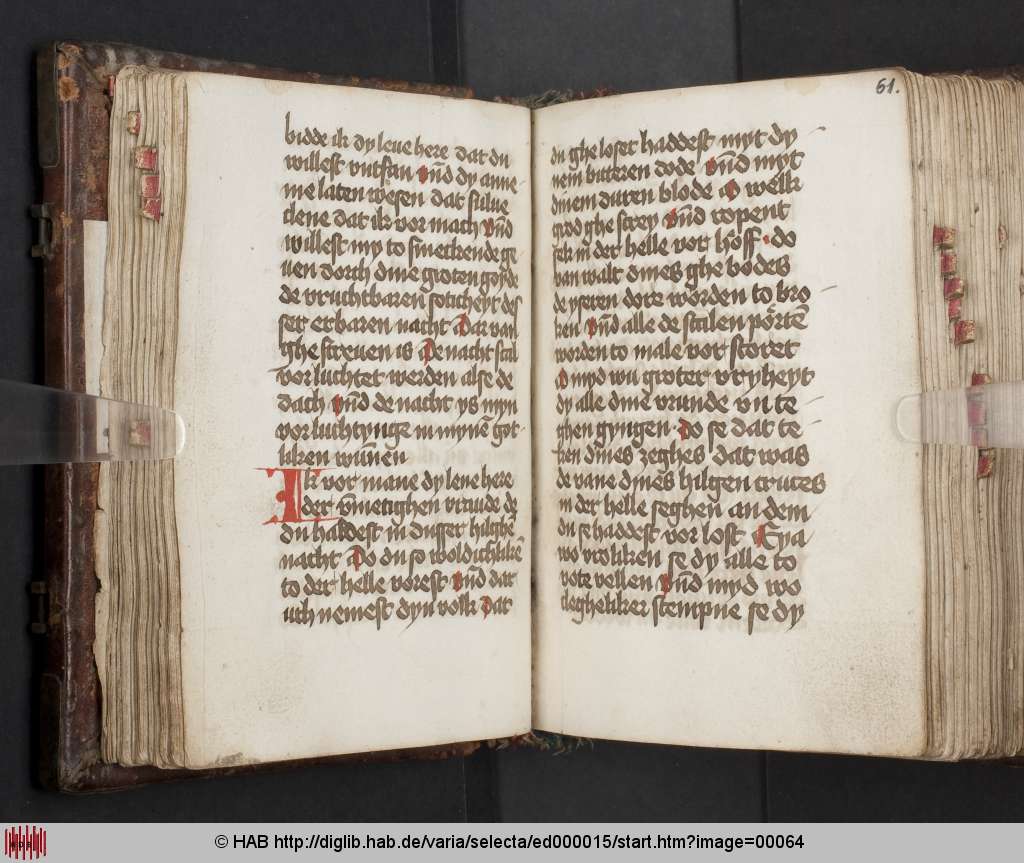 bidde ik dy leue here dat du
willest vntfan vn̄d dy anne
me laten wesen dat sulue
clene dat ik vor mach vn̄d
willest my to smekende ge
uen dorch dine groten gotde
de vruchtbaren soticheyt des
ser erbaren nacht dar van
ghe screuen is de nacht scal
vor luchtet werden alse de
dach vn̄d de nacht ys myn
vor luchtynge in mynē got
liken wūnen
Ik vor mane dy leue here
der vm̄etighen vraude de
du haddest in dusser hilghē
nacht do du so woldichlikē
to der helle vorest vn̄d dar
uth nemest dyn volk dat
61.
du ghe loset haddest myt dy
nem bitteren dode vn̄d myt
dinem duren blode welk
grod ghe screy vn̄d ropent
sek in der helle vor hoff do
van walt dines ghe bodes
de yseren dore worden to bro
ken vn̄d alle de stalen pōrtē
worden to male vor storet
myd wu groter vryheyt
dy alle dine vrunde vn te
ghen gyngen do se dat te
ken dines zeghes dat was
de vane dines hilgen cruces
in der helle seghen an dem
du se haddest vor lost Eya
wo vroliken se dy alle to
vote vellen vn̄d myd wo
clegheliker stempne se dy
© HAB http://diglib.hab.de/varia/selecta/ed000015/start.htm?image=00064